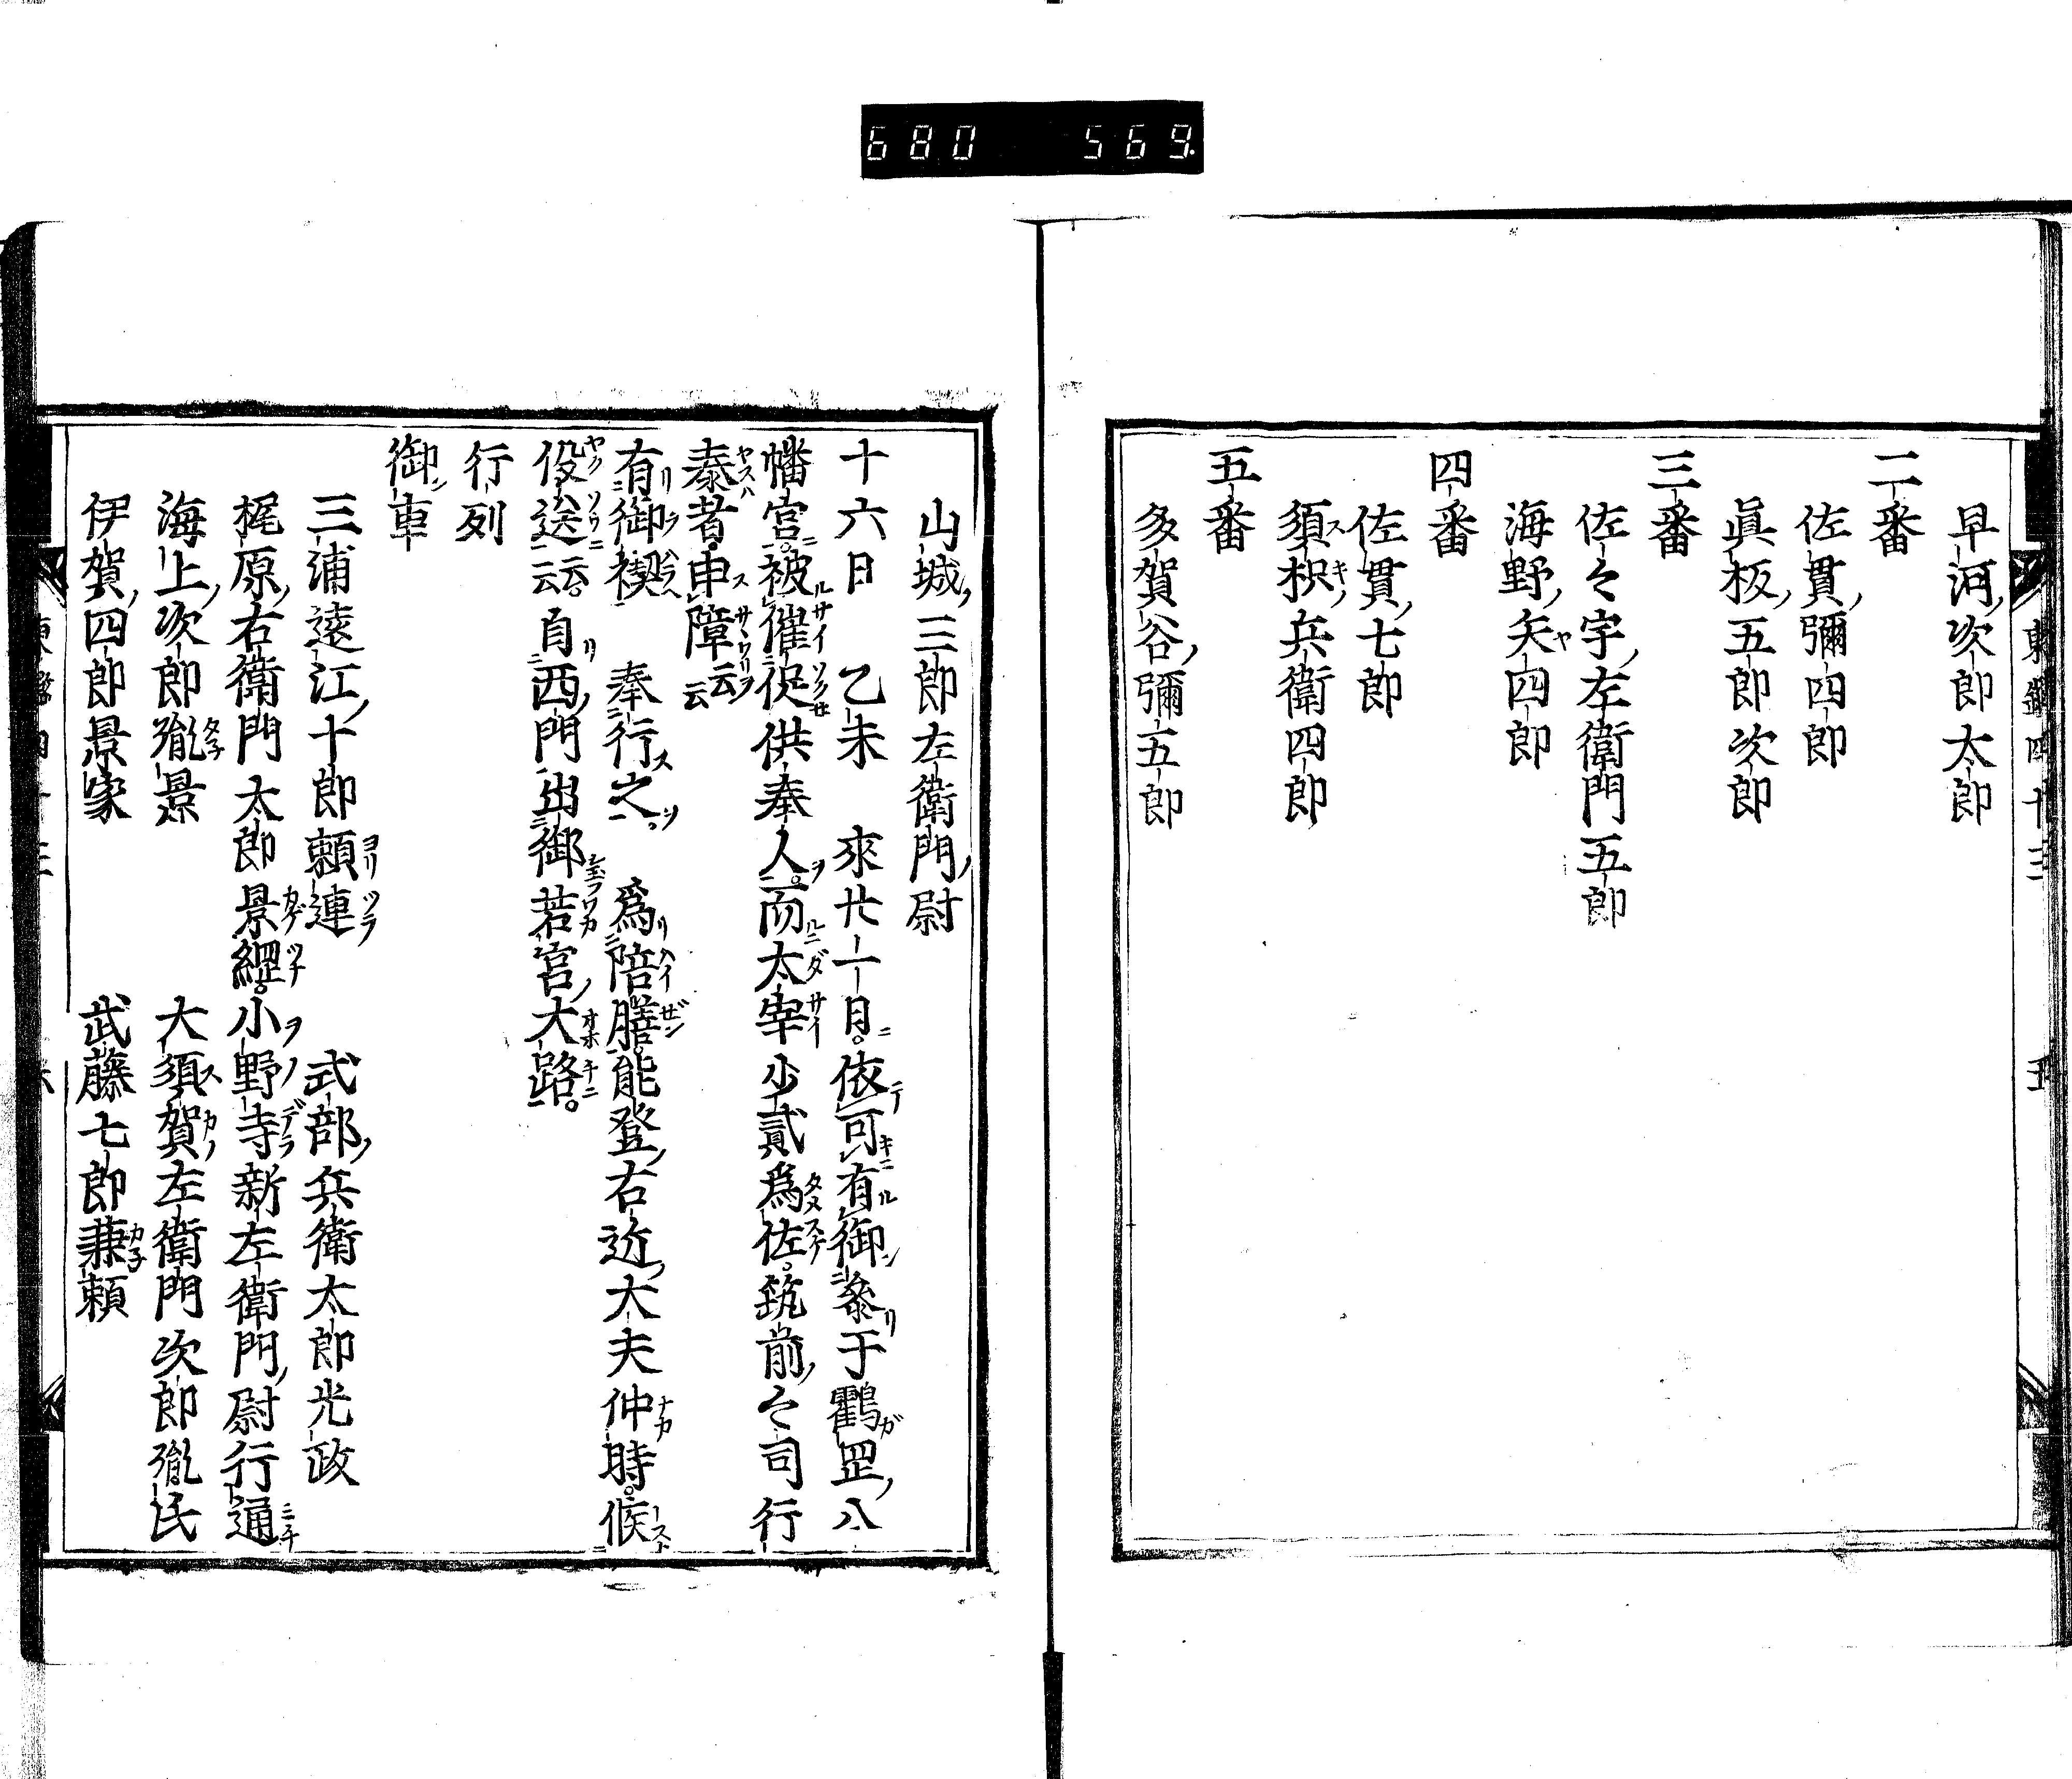 680 569.
早河次郎太郎
二番
佐貫彌四郎
眞板五郎次郎
三番
佐々宇左衛門五郎
海野矢四郎
四番
佐貫七郎
須枳兵衛四郎
五番
多賀谷彌五郎
山城三郎左衛門尉
十六日 乙未 來廿一日依可有御參于鸖罡八
幡宮被催促供奉人而太宰少貳爲佐筑前々司行
泰者申障云云
有御禊 奉行之 爲陪膳能登右近大夫仲時候
役送云云自西門出御若宮大路
行列
御車
三浦遠江十郎頼連 式部兵衛太郎光政
梶原右衛門太郎景綱小野寺新左衛門尉行通
海上次郎胤景 大須賀左衛門次郎胤氏
伊賀四郎景家 武藤七郎兼頼